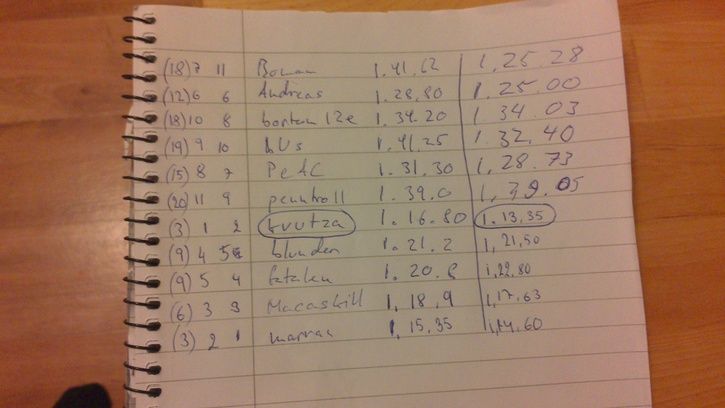 (18) 7 11 Boman 1.41.62 1.25.28
(12) 6 6 Andreas 1.28.80 1.25.00
(18) 10 8 bortom 12e 1.34.20 1.34.03
(19) 9 10 hUs 1.41.25 1.32.40
(15) 8 7 PeAC 1.31.30 1.28.73
(20) 11 9 penntroll 1.39.0 1.39.05
(3) 1 2 1.16.80 1.13.35
(9) 4 5 blunden 1.21.2 1,21,50
(9) 5 4 fatalen 1.20.8 1,22.80
(6) 3 3 Macaskill 1,18,9 1,17.63
(3) 2 1 marran 1,15,35 1,14.60